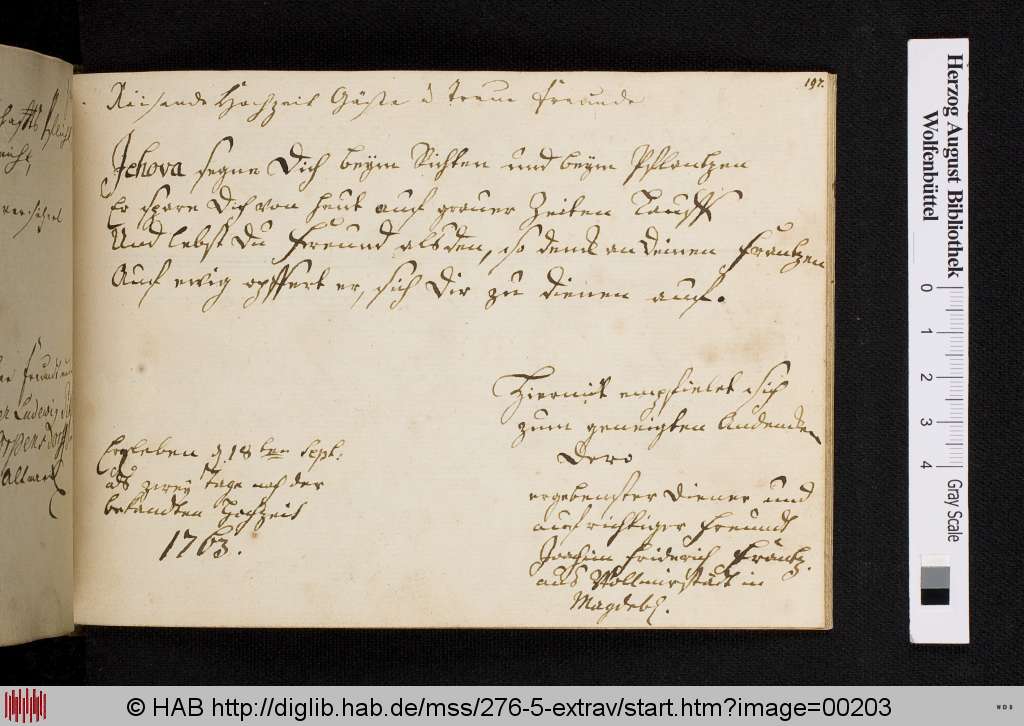 197.
Reisende Hochzeit Gäste d treue Freunde
Jehova segne Dich beym Richten und beym Pflantzen
Er spare Dich von heut auf grauer Zeiten Lauff
Und lebst Du Freund alsden, so denck an Deinen Frantzen
Auf ewig opffert er, sich Dir zu dienen auf.
Hiermit empfielet sich
zum geneigten Andencken
Dero
ergebenster Diener und
aufrichtiger Freund
Joachim Friderich Frantz.
aus Wollmirstädt im
Magdeb.
Erxleben d. 18ten Sept:
als zwey Tage nach der
bekandten Hochzeit
1763.
Freund
Ludewig
Altmark
Herzog August Bibliothek
Wolfenbüttel
0
1
2
3
4
Gray Scale
© HAB http://diglib.hab.de/mss/276-5-extrav/start.htm?image=00203